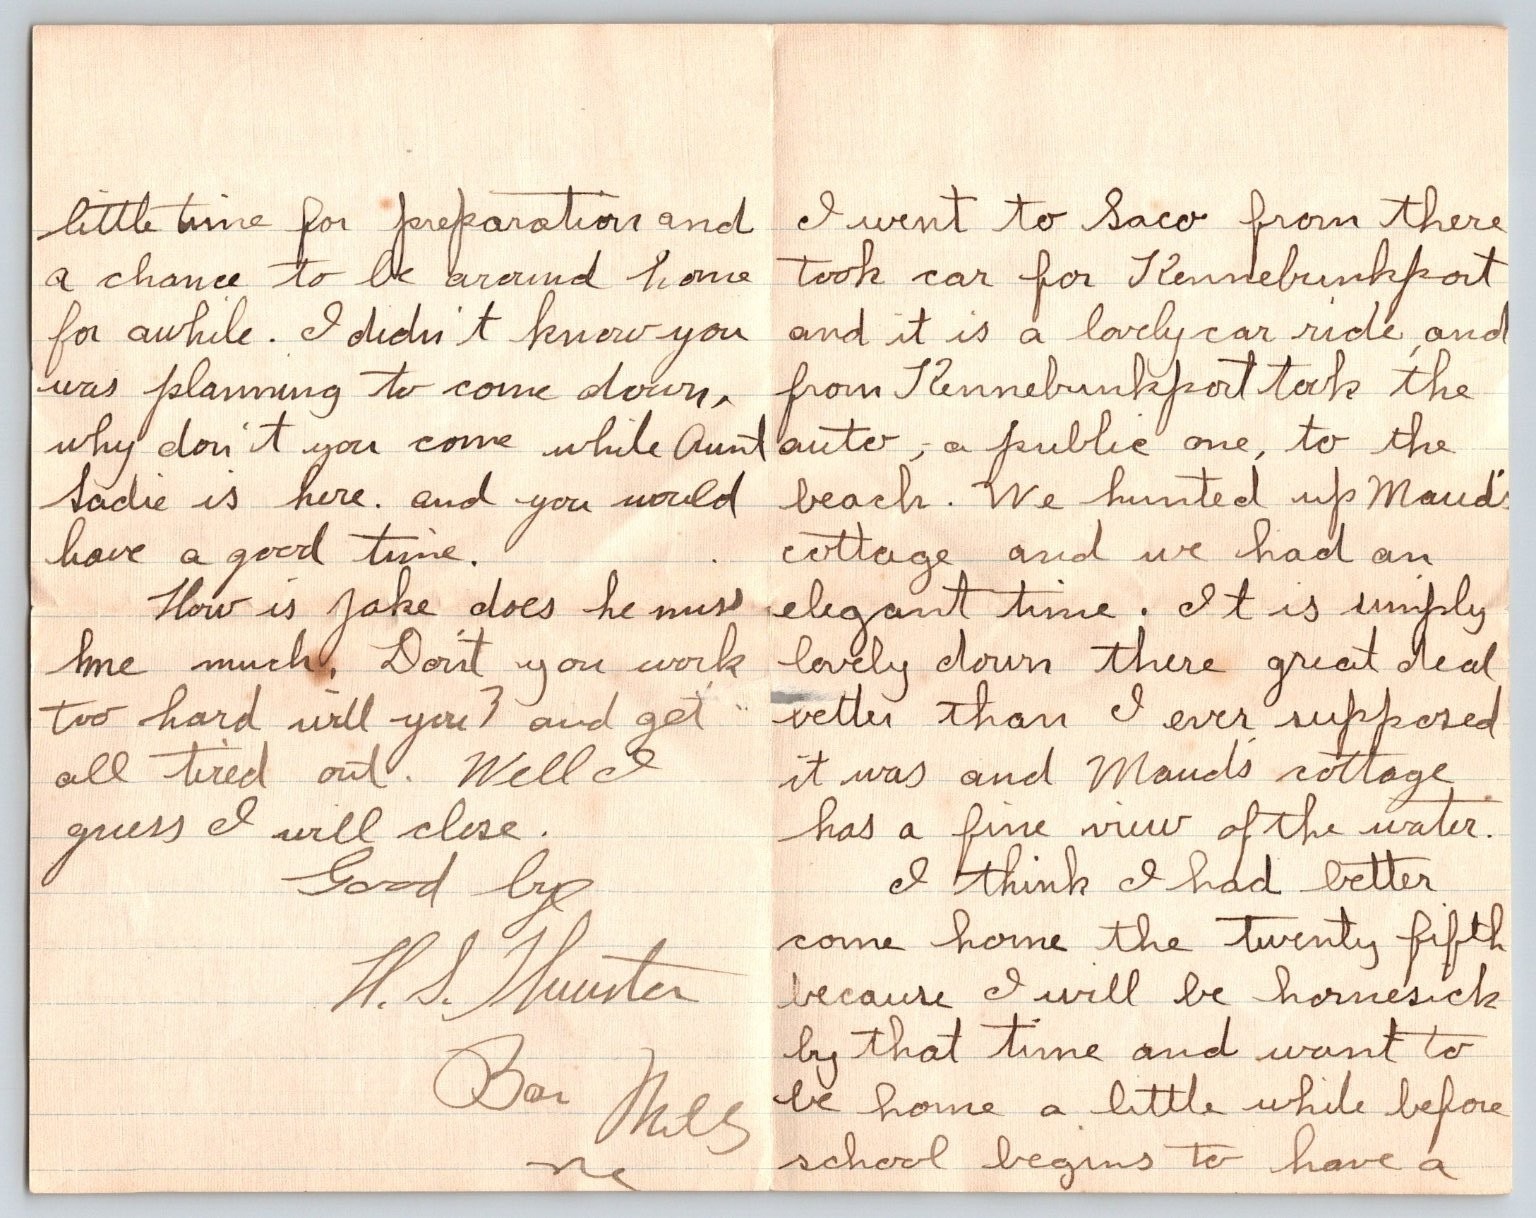 I went to Saco from there
took car for Kennebunkport
and it is a lovely car ride, and
from Kennebunkport took the
auto, - a public one, to the
beach. We hunted up Maud's
cottage and we had an
elegant time. It is simply
lovely down there great deal
better than I ever supposed
it was and Maud's cottage
has a fine view of the water.
I think I had better
come home the twenty fifth
because I will be homesick
by that time and want to
be home a little while before
school begins to have a
little time for preparation and
a chance to be around home
for awhile. I didn't know you
was planning to come down,
why don't you come while Aunt
Sadie is here. and you would
have a good time.
How is Jake does he miss
me much. Don't you work
too hard will you? and get
all tired out. Well I
guess I will close.
Good by
H. S.
Bar Mills
Me